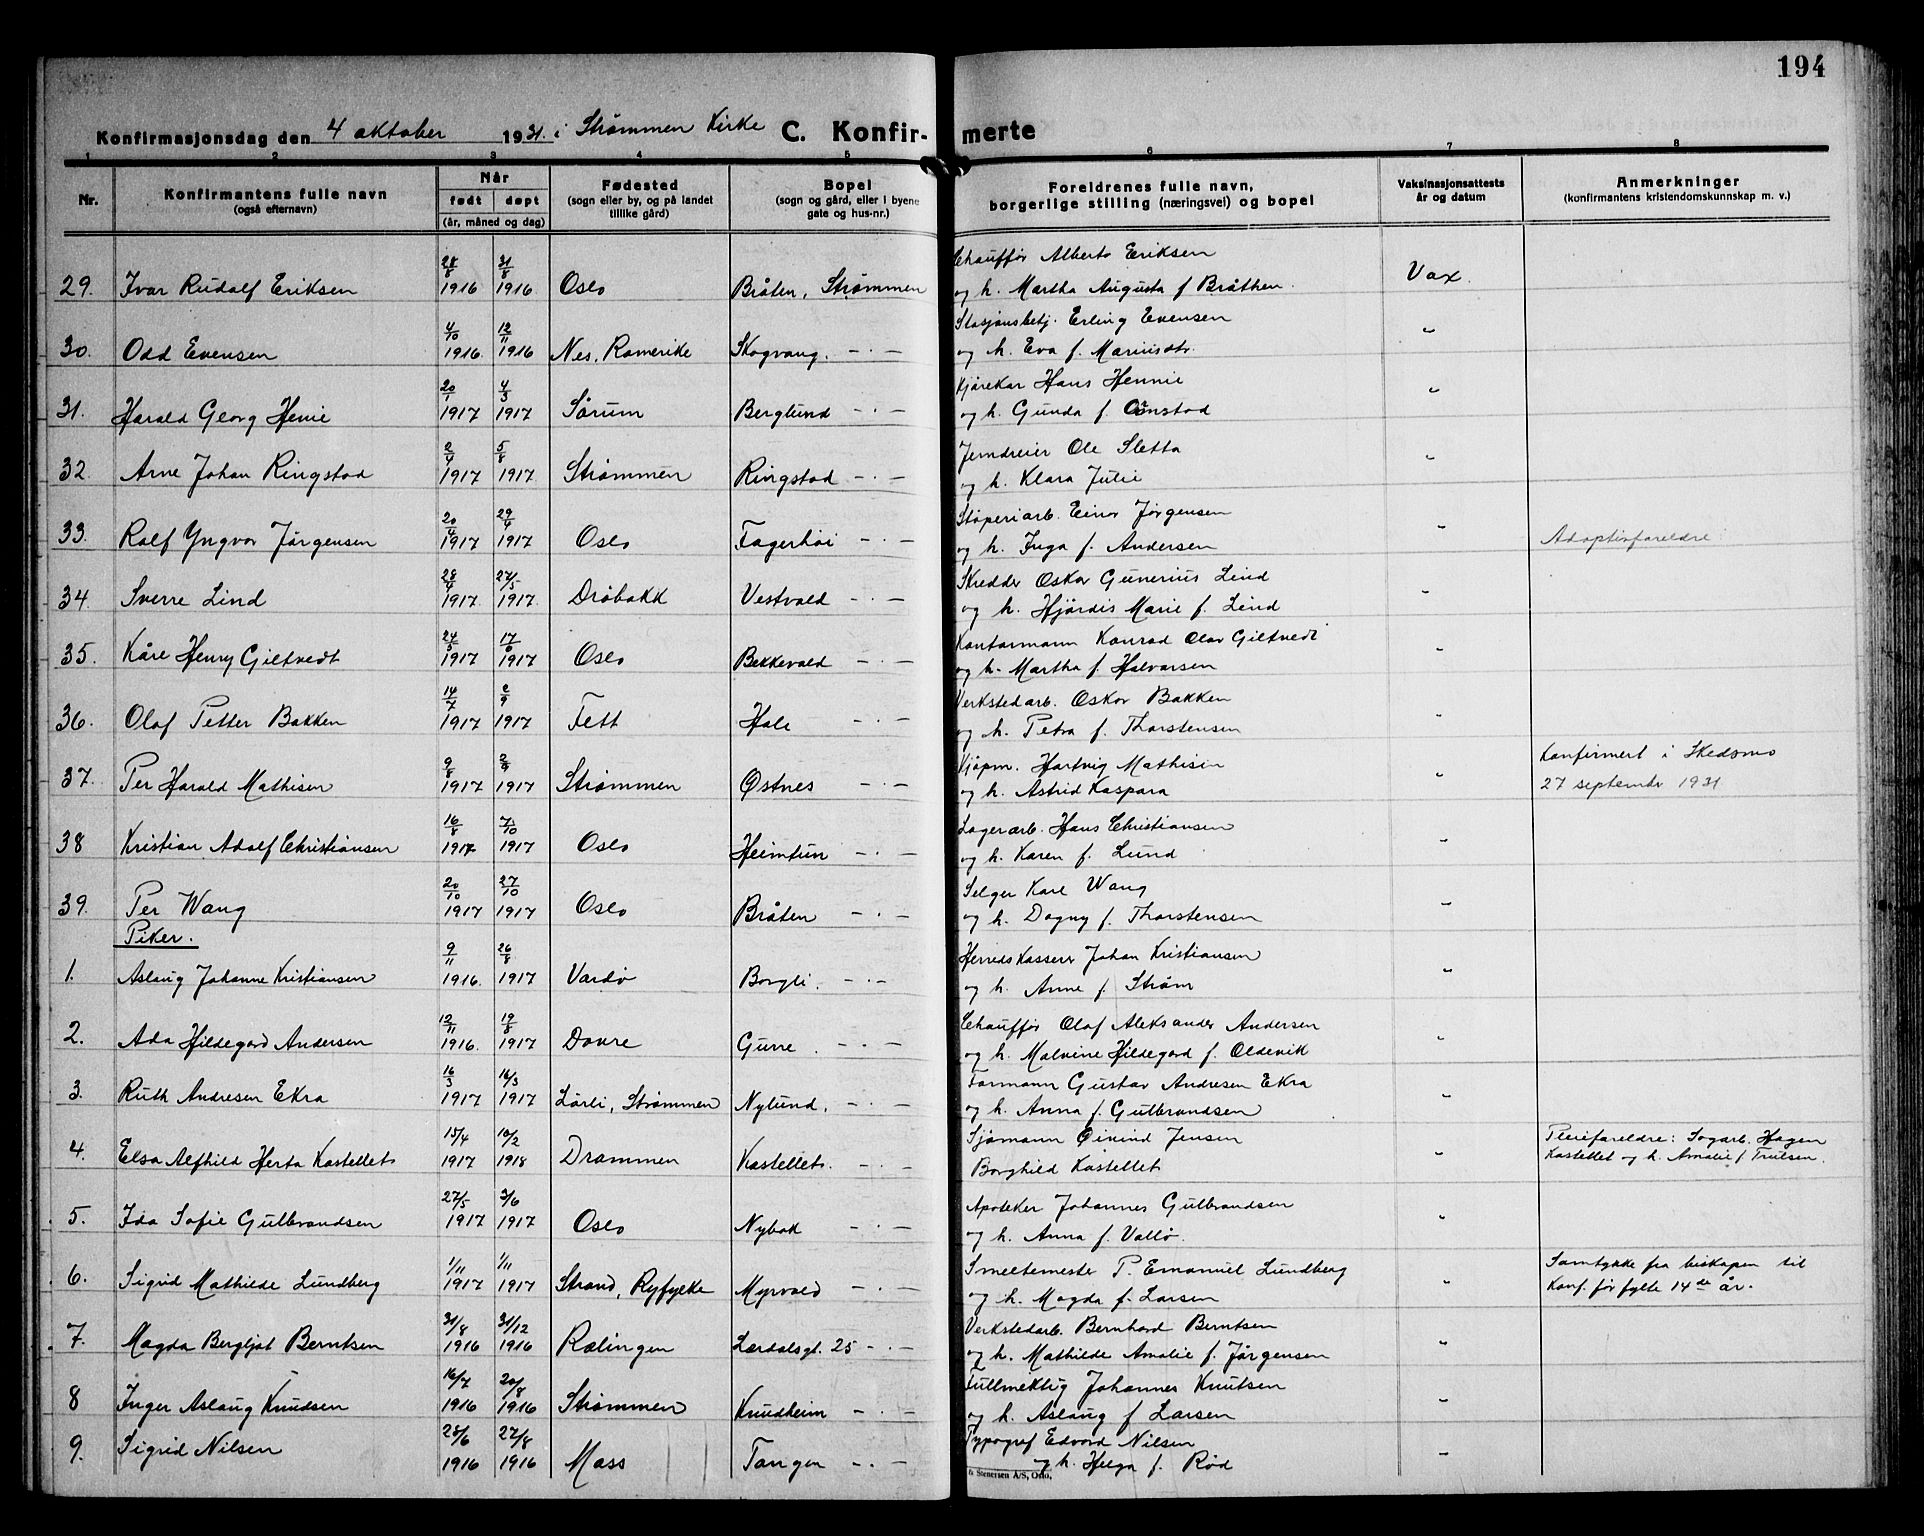 194
Konfirmasjonsdag den 4 oktober 1931. i Strømmen Kirke C. Konfir-merte
1 2 3 4 5 6 7 8
Nr. Konfirmantens fulle navn (også efternavn) Når født døpt (år, måned og dag) Fødested (sogn eller by, og på landet tillike gård) Bopel (sogn og gård, eller i byene gate og hus-nr.) Foreldrenes fulle navn, borgerlige stilling (næringsvei) og bopel Vaksinasjonsattests år og datum Anmerkninger (konfirmantens kristendomskunnskap m. v.)
28/8 31/8 Chauffør Alberto Eriksen
29. Ivar Rudolf Eriksen 1916 1916 Oslo Bråten, Strømmen og h. Martha Augusta f Bråthen. Vax.
4/10 12/11 Stasjonsbetj. Erling Evensen
30. Odd Evensen 1916. 1916 Nes, Romerike Skogvang. - . - og h. Eva f. Mariusdtr. "
20/1 4/3 Kjørekar Hans Hennie
31. Harald Georg Henie 1917 1917 Sørum Berglund - . - og h. Gunda f. Onstad "
2/4 5/8 Jerndreier Ole Sletta
32. Arne Johan Ringstad 1917 1917 Strømmen Ringstad - . - og h. Klara Julie "
20/4 29/4 Støperiarb. Einar Jørgensen
33. Rolf Yngvar Jørgensen 1917 1917 Oslo Fagerhøi - . - og h. Inga f. Andersen " Adoptivforeldre
28/4 27/5 Skredder Oskar Gunerius Lind
34. Sverre Lind 1917. 1917. Drøbakk Vestvold - . - og h. Hjørdis Marie f. Lind "
24/5 17/6 Kontormann Konrad Olav Giltvedt
35. Kåre Henry Giltvedt 1917 1917 Oslo Bekkevold - . - og h. Martha f. Halvorsen "
14/7 2/9 Verkstedarb. Oskar Bakken
36. Olaf Petter Bakken 1917 1917 Fett Hole - . - og h. Petra f. Thorstensen "
9/8 2/9 Kjøpm. Hartvig Mathisen Konfirmert i Skedsmo
37. Per Harald Mathisen 1917 1917 Strømmen Østnes - . - og h. Astrid Kaspara " 27 september 1931
16/8 7/10 Lagerarb. Hans Christiansen
38 Kristian Adolf Christiansen 1917 1917 Oslo Heimtun - . - og h. Karen f. Lund "
20/10 27/10 Selger Karl Wang
39. Per Wang 1917 1917 Oslo Bråten - . - og h. Dagny f. Thorstensen "
Piker.
9/11 26/8 Herredskasserer Johan Kristiansen
1. Aslaug Johanne Kristiansen 1916. 1917 Vardø Borgli. - . - og h. Anne f. Strøm "
12/11 19/8 Chauffør Olaf Aleksander Andersen
2. Ada Hildegard Andersen 1916. 1917 Dovre Gurre. - . - og h. Malvine Hildegard f. Oldervik "
16/3 16/3 Formann Gustav Andresen Ekra
3. Ruth Andresen Ekra 1917 1917 Lørli, Strømmen Nylund. - . - og h. Anna f. Gulbrandsen "
15/4 10/2 Sjømann Øivind Jensen Pleieforeldre: Sagarb. Hagen
4. Elsa Alfhild Herta Kastellet 1917 1918 Drammen Kastellet. - . - Borghild Kastellet " Kastellet og h. Amalie f Trulsen.
27/5 3/6 Apoteker Johannes Gulbrandsen
5. Ida Sofie Gulbrandsen 1917 1917 Oslo Nybak - . - og h. Anna f. Vallø. "
1/11 1/11 Smeltemester P. Emanuel Lundberg Samtykke fra biskopen til
6. Sigrid Mathilde Lundberg 1917 1917 Strand, Ryfylke Myrvold - . - og h. Magda f. Larsen " Konf. før fylte 14de år.
31/8 31/12 Verkstedarb. Bernhard Berntsen
7. Magda Bergljot Berntsen 1916 1916 Rælingen Lærdalsgt. 25 - . - og h. Mathilde Amalie f. Jørgensen "
16/7 20/8 Fullmektig Johannes Knutsen
8 Inger Aslaug Knudsen 1916 1916 Strømmen Knudheim - . - og h. Aslaug f Larsen "
28/6 27/8 Typograf Edvard Nilsen
9. Sigrid Nilsen 1916 1916 Moss Tangen - . - og h. Helga f. Rød "
& Stenersen A/S, Oslo.